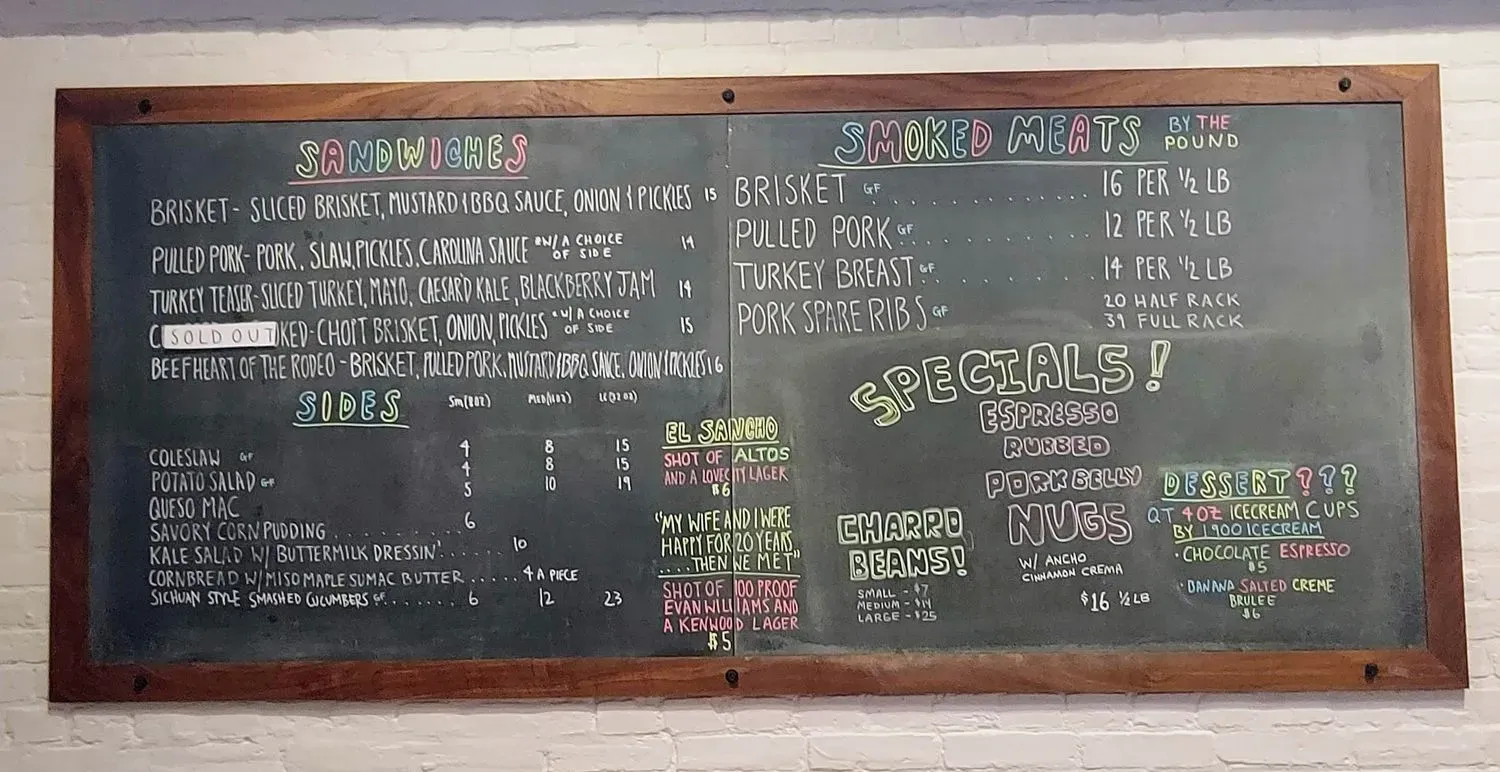 SANDWICHES
BRISKET - SLICED BRISKET, MUSTARD & BBQ SAUCE, ONION & PICKLES 15
PULLED PORK - PORK, SLAW, PICKLES, CAROLINA SAUCE *W/ A CHOICE OF SIDE 14
TURKEY TEASER - SLICED TURKEY, MAYO, CAESAR'D KALE, BLACKBERRY JAM 14
C SOLD OUT KED - CHOPT BRISKET, ONION, PICKLES *W/ A CHOICE OF SIDE 15
BEEFHEART OF THE RODEO - BRISKET, PULLED PORK, MUSTARD & BBQ SAUCE, ONION & PICKLES 16
SIDES SM(8OZ) MED(16OZ) LG(32OZ)
COLESLAW GF 4 8 15
POTATO SALAD GF 4 8 15
QUESO MAC 5 10 19
SAVORY CORN PUDDING . . . . . . . . . . 6
KALE SALAD W/ BUTTERMILK DRESSIN' . . . . . . 10
CORNBREAD W/ MISO MAPLE SUMAC BUTTER . . . . . 4 A PIECE
SICHUAN STYLE SMASHED CUCUMBERS GF . . . . . . . 6 12 23
EL SANCHO
SHOT OF ALTOS
AND A LOVE CITY LAGER
$6
"MY WIFE AND I WERE
HAPPY FOR 20 YEARS
. . . . THEN WE MET"
SHOT OF 100 PROOF
EVAN WILLIAMS AND
A KENWOOD LAGER
$5
SMOKED MEATS BY THE POUND
BRISKET GF . . . . . . . . . . . . 16 PER ½ LB
PULLED PORK GF . . . . . . . . . . 12 PER ½ LB
TURKEY BREAST GF . . . . . . . . . 14 PER ½ LB
PORK SPARE RIBS GF 20 HALF RACK
39 FULL RACK
SPECIALS!
ESPRESSO
RUBBED
PORK BELLY
NUGS
W/ ANCHO
CINNAMON CREMA
$16 ½ LB
CHARRO
BEANS!
SMALL - $7
MEDIUM - $14
LARGE - $25
DESSERT???
QT 4OZ ICECREAM CUPS
BY 1900 ICECREAM
• CHOCOLATE ESPRESSO
$5
• BANANA SALTED CREME
BRULEE
$6